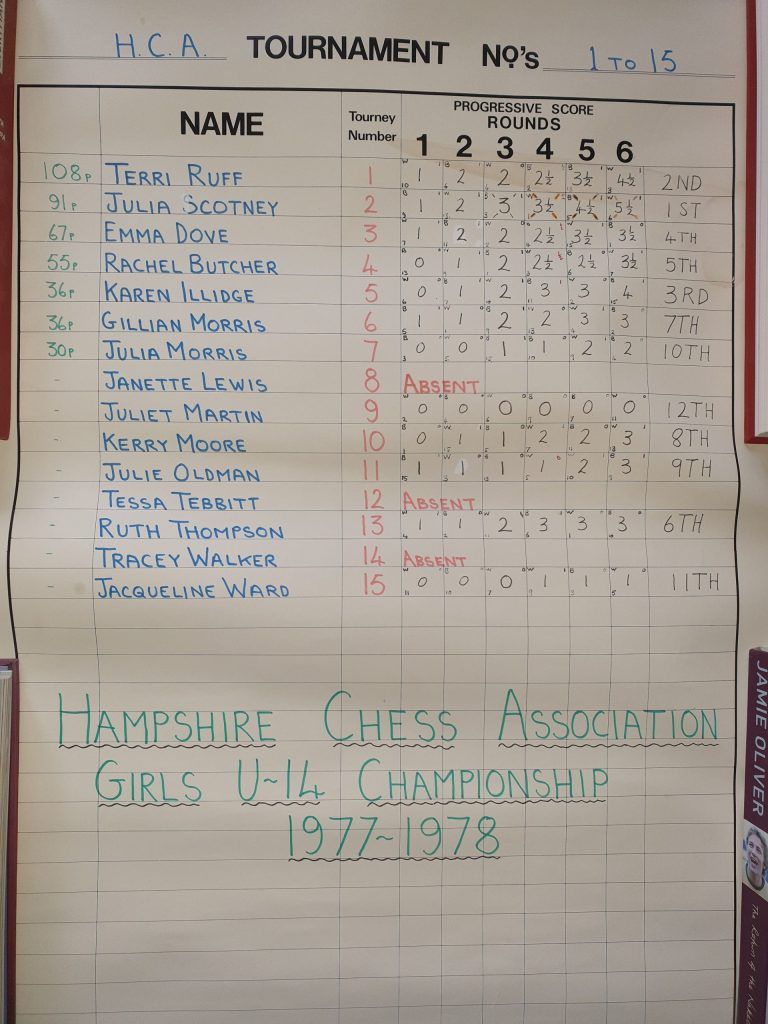 H.C.A. TOURNAMENT Nº's 1 TO 15
PROGRESSIVE SCORE
NAME Tourney Number ROUNDS
1 2 3 4 5 6
108P TERRI RUFF 1 1 2 2 2½ 3½ 4½ 2ND
91P JULIA SCOTNEY 2 1 2 3 3½ 4½ 5½ 1ST
67P EMMA DOVE 3 1 2 2 2½ 3½ 3½ 4TH
55P RACHEL BUTCHER 4 0 1 2 2½ 2½ 3½ 5TH
36P KAREN ILLIDGE 5 0 1 2 3 3 4 3RD
36P GILLIAN MORRIS 6 1 1 2 2 3 3 7TH
30P JULIA MORRIS 7 0 0 1 1 2 2 10TH
- JANETTE LEWIS 8 ABSENT
- JULIET MARTIN 9 0 0 0 0 0 0 12TH
- KERRY MOORE 10 0 1 1 2 2 3 8TH
- JULIE OLDMAN 11 1 1 1 1 2 3 9TH
- TESSA TEBBITT 12 ABSENT
- RUTH THOMPSON 13 1 1 2 3 3 3 6TH
- TRACEY WALKER 14 ABSENT
- JACQUELINE WARD 15 0 0 0 1 1 1 11TH
HAMPSHIRE CHESS ASSOCIATION
GIRLS U-14 CHAMPIONSHIP
1977-1978
JAMIE OLIVER